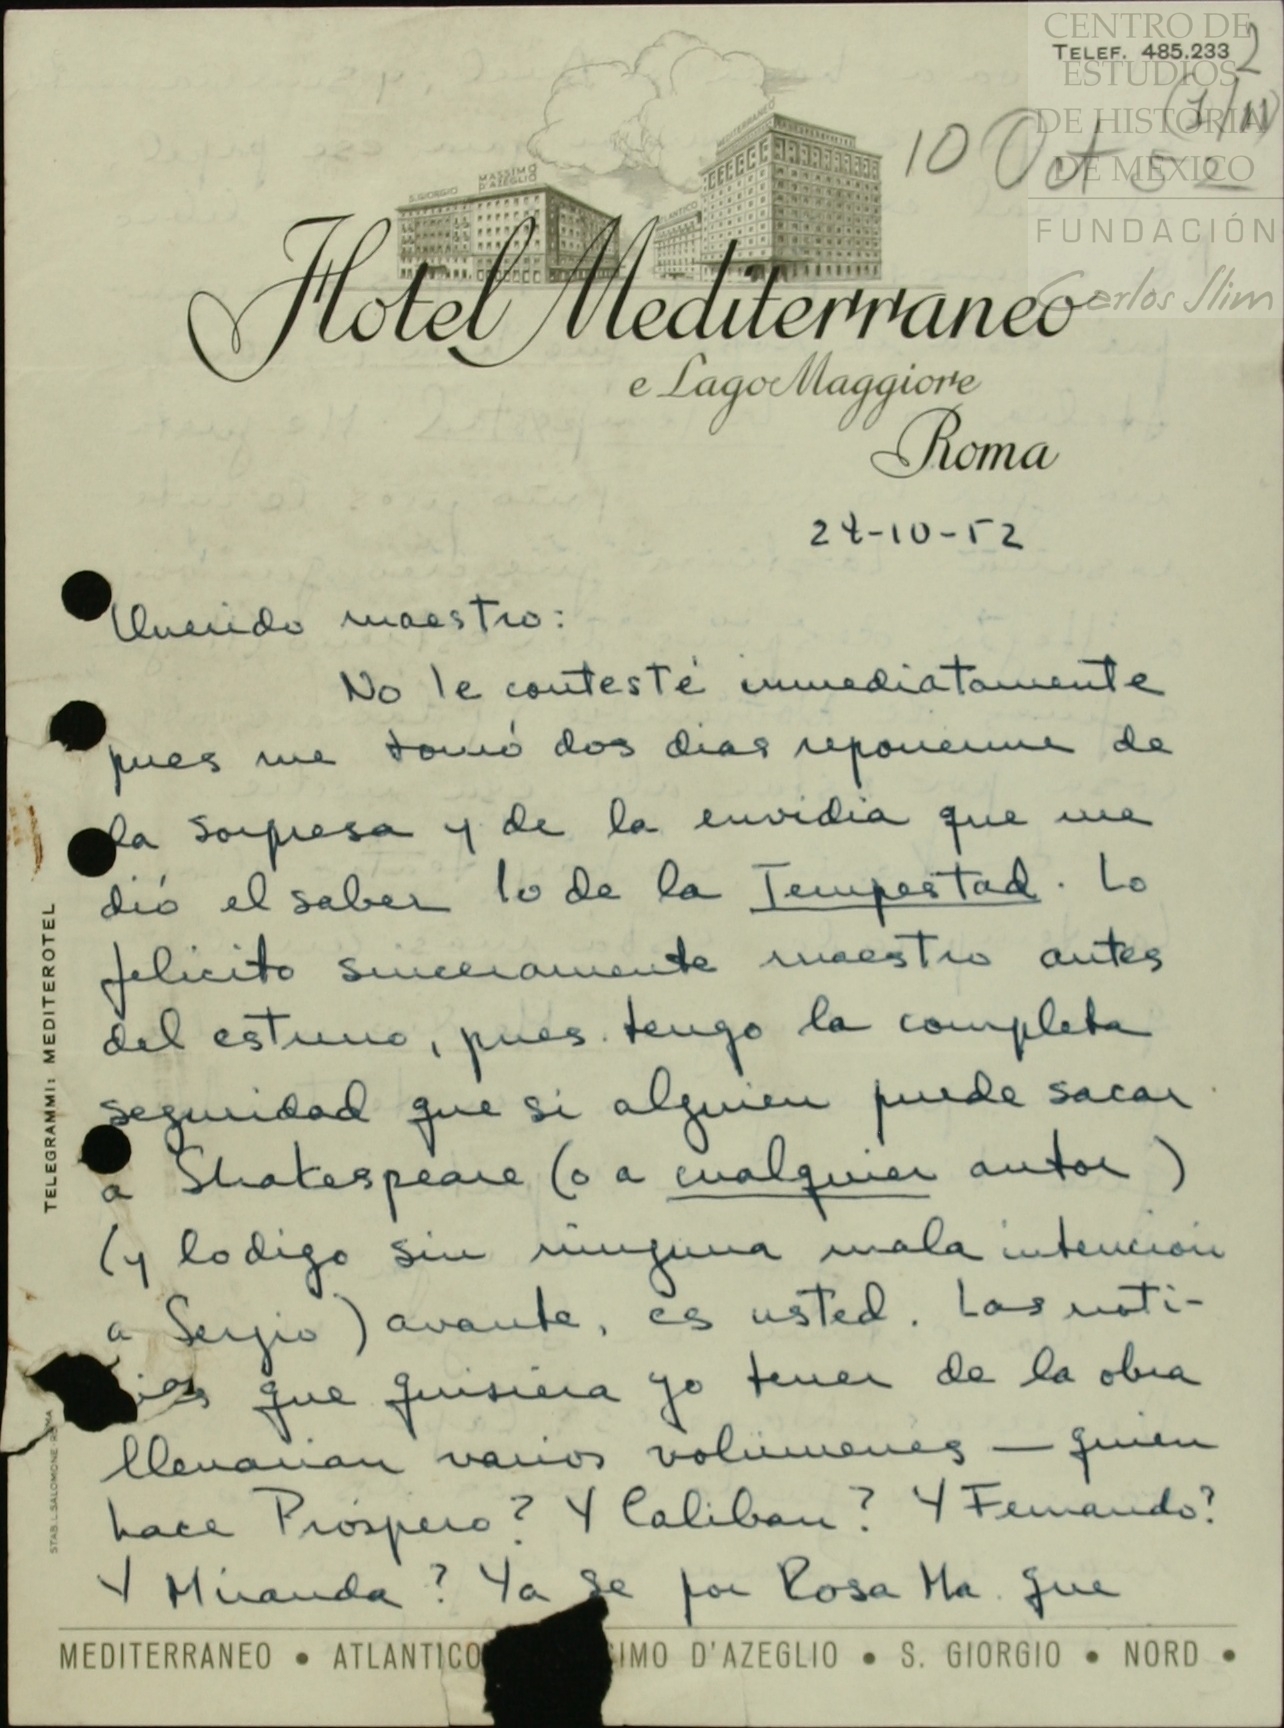 CENTRO DE
ESTUDIOS
DE HISTORIA
DE MÉXICO
FUNDACIÓN
Carlos Slim
TELEF. 485.233
2
(1/11)
10 Oct 52
S. GIORGIO
MASSIMO D'AZEGLIO
ATLANTICO
MEDITERRANEO
Hotel Mediterraneo
e Lago Maggiore
Roma
24-10-52
Querido maestro:
No le contesté inmediatamente
pues me tomó dos dias reponerme de
la sorpresa y de la envidia que me
dió el saber lo de la Tempestad. Lo
felicito sinceramente maestro antes
del estreno, pues tengo la completa
seguridad que si alguien puede sacar
a Shakespeare (o a cualquier autor)
(y lo digo sin ninguna mala intención
a Sergio) avante, es usted. Las noti-
cias que quisiera yo tener de la obra
llenarian varios volúmenes — quien
hace Próspero? Y Caliban? Y Fernando?
Y Miranda? Ya se por Rosa Ma. que
TELEGRAMMI: MEDITEROTEL
STAB. L. SALOMONE - ROMA
MEDITERRANEO • ATLANTICO SIMO D'AZEGLIO • S. GIORGIO • NORD •